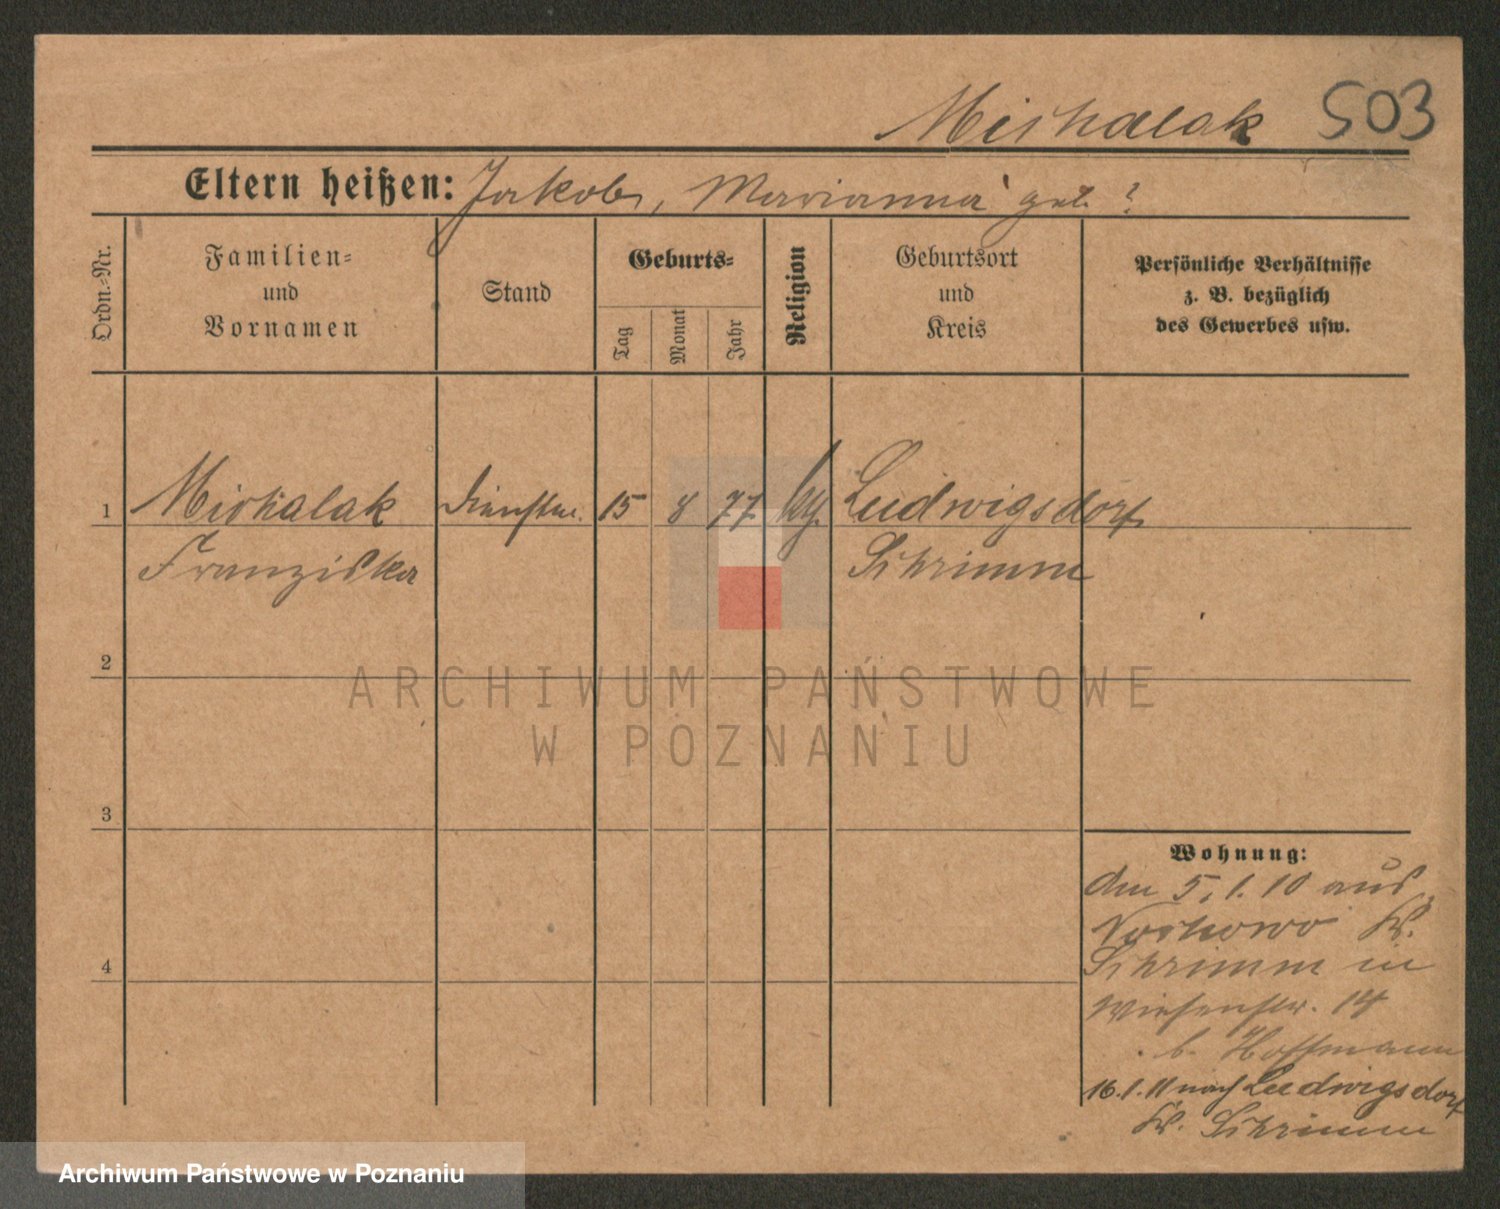 Michalak 503
Eltern heißen: Jakob, Marianna geb. ?
Ordn.-Nr.
Familien-
und
Vornamen
Stand
Geburts-
Tag
Monat
Jahr
Religion
Geburtsort
und
Kreis
Persönliche Verhältnisse
z. B. bezüglich
des Gewerbes usw.
1 Michalak Dienstm. 15 8 77 kg. Ludwigsdorf
Franziska Schrimm
2
3
4
Wohnung:
Am 5.1.10 aus
Kr.
Schrimm in
Wiesenstr. 14
b. Hoffmann
16.1.11 nach Ludwigsdorf
Kr. Schrimm
ARCHIWUM PAŃSTWOWE
W POZNANIU
Archiwum Państwowe w Poznaniu